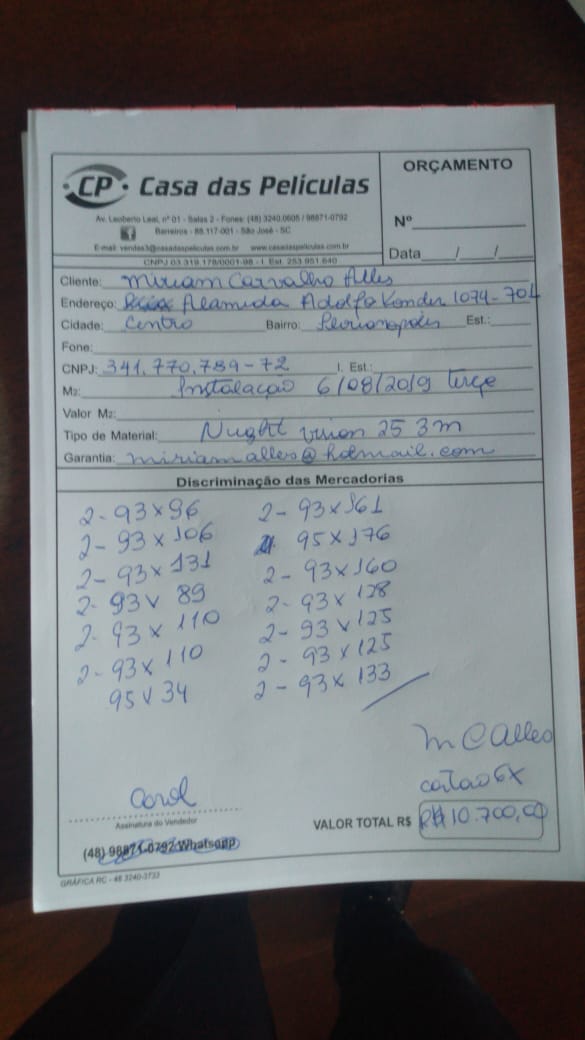 CP Casa das Películas
Av. Leoberto Leal, nº 01 - Salas 2 - Fones: (48) 3240.0605 / 98871-0792
Barreiros - 88.117-001 - São José - SC
E-mail: vendas3@casadaspeliculas.com.br www.casadaspeliculas.com.br
CNPJ 03.319.178/0001-98 - I. Est. 253.951.640
ORÇAMENTO
Nº
Data / /
Cliente: Miriam Carvalho Alles
Endereço: Alamida Adolfo Konder 1074-701
Cidade: Centro Bairro: Florianopolis Est.:
Fone:
CNPJ: 341.770.789-72 I. Est.:
M2: Instalação 6/08/2019 terça
Valor M2:
Tipo de Material: Nught vision 25 3m
Garantia: miriamalles@hotmail.com
Discriminação das Mercadorias
2- 93x96 2- 93x161
2- 93x106 95x176
2- 93x131 2- 93x160
2- 93x89 2- 93x128
2- 93x110 2- 93x125
2- 93x110 2- 93x125
95x34 2- 93x133
M C Alles
Carol cartao 6x
Assinatura do Vendedor
VALOR TOTAL R$ R$ 10.700,00
(48) 98871-0792 Whatsapp
GRÁFICA RC - 48 3240-3733